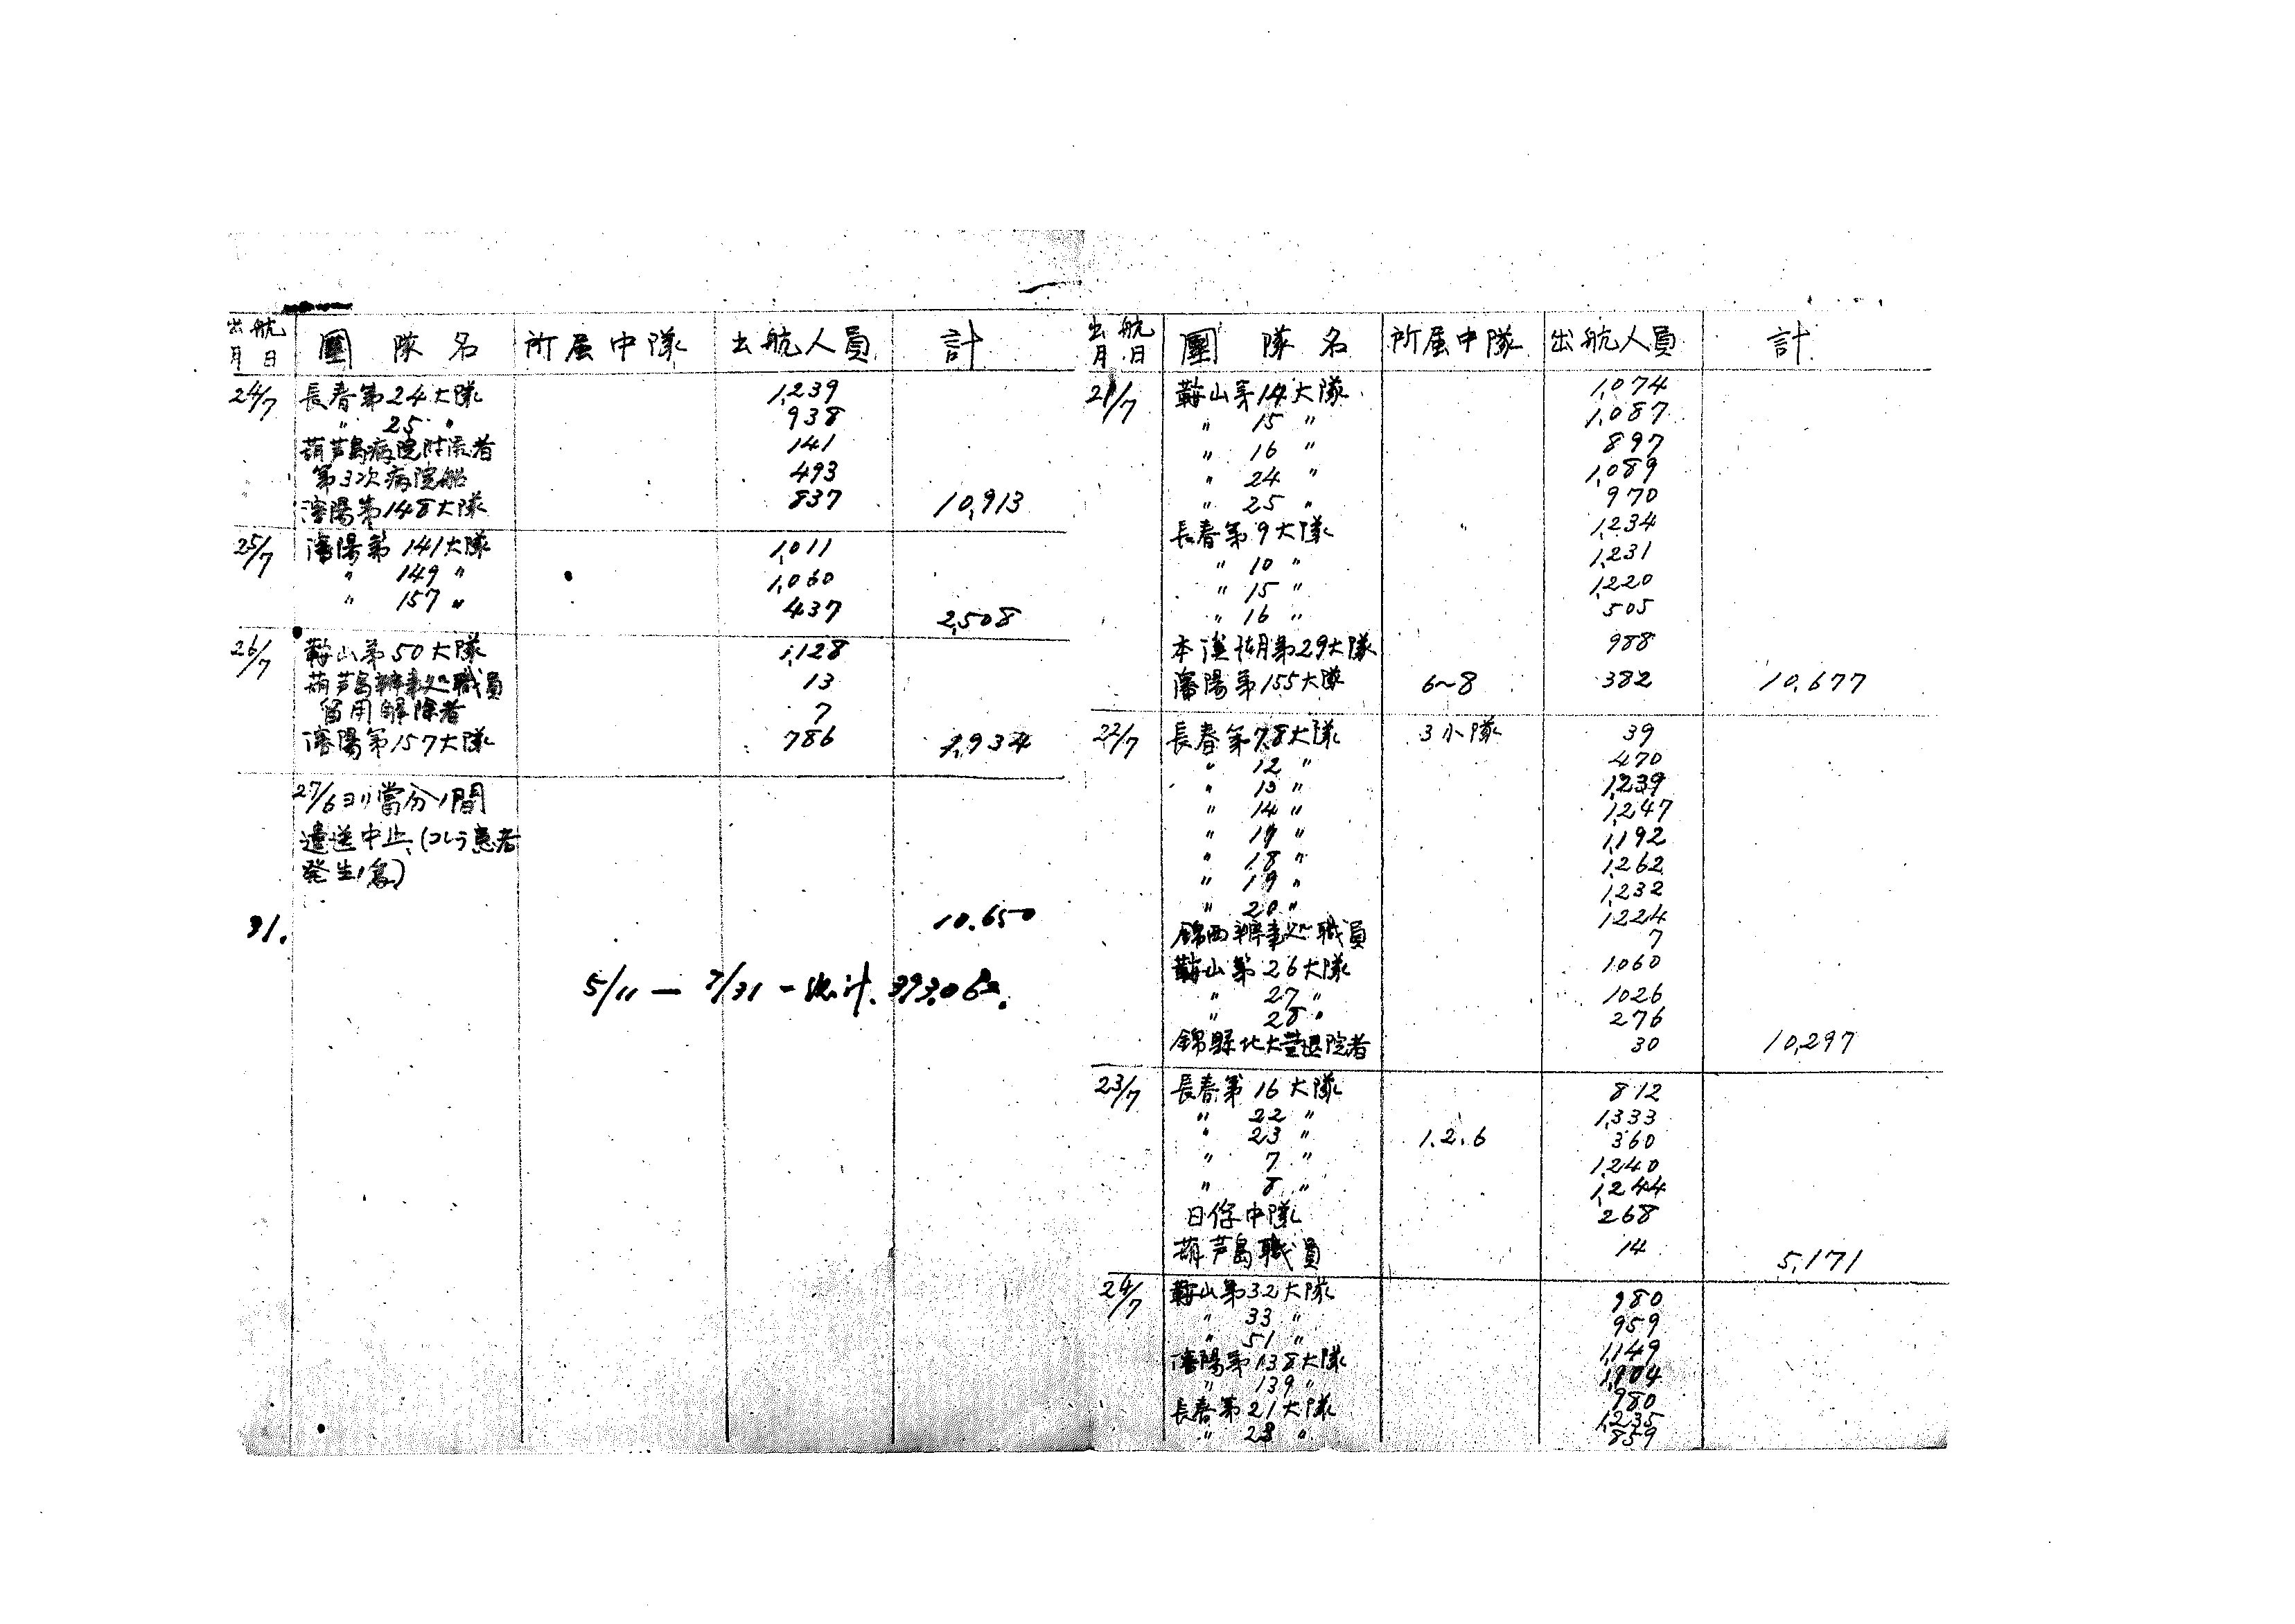 出航月日 團隊名 所属中隊 出航人員 計
21/7 鞍山第14大隊 1,074
〃 15 〃 1,087
〃 16 〃 897
〃 24 〃 1,089
〃 25 〃 970
長春第9大隊 1,234
〃 10 〃 1,231
〃 15 〃 1,220
〃 16 〃 505
本溪湖第29大隊 988
瀋陽第155大隊 6~8 382 10,677
22/7 長春第7.8大隊 3小隊 39
〃 12 〃 470
〃 13 〃 1,239
〃 14 〃 1,247
〃 17 〃 1,192
〃 18 〃 1,262
〃 19 〃 1,232
〃 20 〃 1,224
錦西辦事処職員 7
鞍山第26大隊 1060
〃 27 〃 1026
〃 28 〃 276
錦縣北大営退院者 30 10,297
23/7 長春第16大隊 812
〃 22 〃 1,333
〃 23 〃 1.2.6 360
〃 7 〃 1,240
〃 8 〃 1,244
日俘中隊 268
葫芦島職員 14 5,171
24/7 鞍山第32大隊 980
〃 33 〃 959
〃 51 〃 1,149
瀋陽第138大隊 1,104
〃 139 〃 980
長春第21大隊 1,235
〃 23 〃 859
出航月日 團隊名 所属中隊 出航人員 計
24/7 長春第24大隊 1,239
〃 25 〃 938
葫芦島病院附添者 141
第3次病院船 493
瀋陽第148大隊 837 10,913
25/7 瀋陽第141大隊 1,011
〃 149 〃 1,060
〃 157 〃 437 2,508
26/7 鞍山第50大隊 1,128
葫芦島辦事処職員 13
留用解除者 7
瀋陽第157大隊 786 1,934
27/6ヨリ當分ノ間
遣送中止、(コレラ患者
発生ノ為)
31. 10.650
5/11 — 7/31 - 総計.